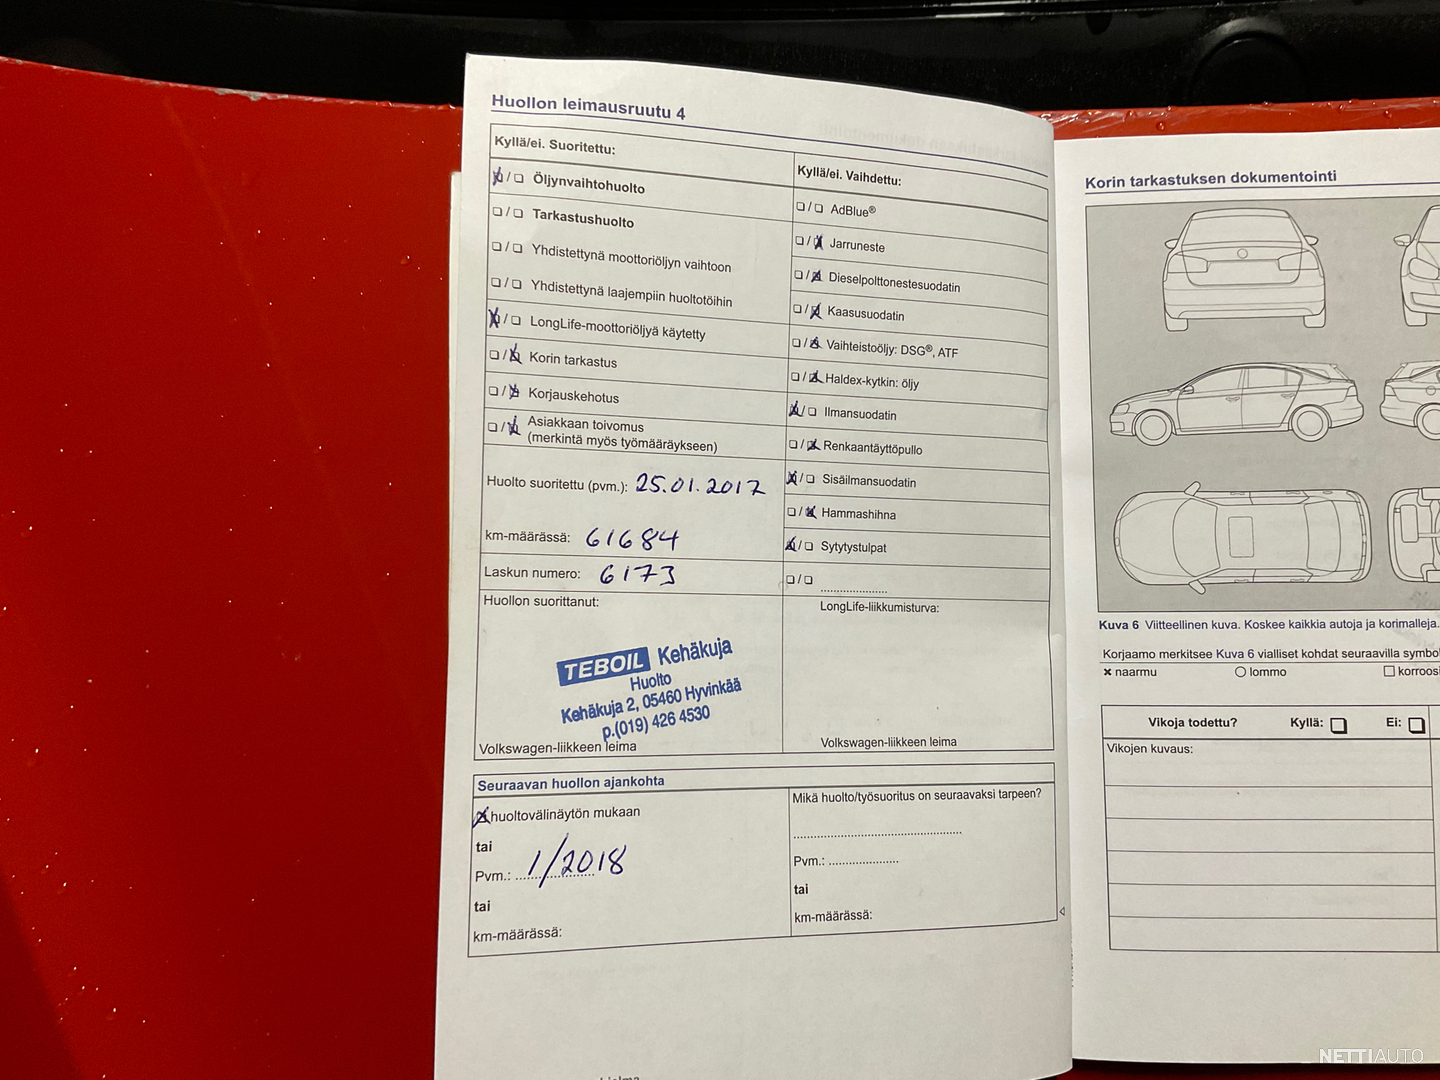 Huollon leimausruutu 4
Kyllä/ei. Suoritettu:
Öljynvaihtohuolto
Tarkastushuolto
Yhdistettynä moottoriöljyn vaihtoon
Yhdistettynä laajempiin huoltotöihin
LongLife-moottoriöljyä käytetty
Korin tarkastus
Korjauskehotus
Asiakkaan toivomus
(merkintä myös työmääräykseen)
Huolto suoritettu (pvm.): 25.01.2017
km-määrässä: 61684
Laskun numero: 6173
Huollon suorittanut:
TEBOIL Kehäkuja
Huolto
Kehäkuja 2, 05460 Hyvinkää
p.(019) 426 4530
Volkswagen-liikkeen leima
Kyllä/ei. Vaihdettu:
AdBlue®
Jarruneste
Dieselpolttonestesuodatin
Kaasusuodatin
Vaihteistoöljy: DSG®, ATF
Haldex-kytkin: öljy
Ilmansuodatin
Renkaantäyttöpullo
Sisäilmansuodatin
Hammashihna
Sytytystulpat
LongLife-liikkumisturva:
Volkswagen-liikkeen leima
Seuraavan huollon ajankohta
huoltovälinäytön mukaan
tai
Pvm.: 1/2018
tai
km-määrässä:
Mikä huolto/työsuoritus on seuraavaksi tarpeen?
Pvm.:
tai
km-määrässä:
Korin tarkastuksen dokumentointi
Kuva 6 Viitteellinen kuva. Koskee kaikkia autoja ja korimalleja.
Korjaamo merkitsee Kuva 6 vialliset kohdat seuraavilla symbo
naarmu
lommo
korroosi
Vikoja todettu? Kyllä: Ei:
Vikojen kuvaus:
NETTIAUTO